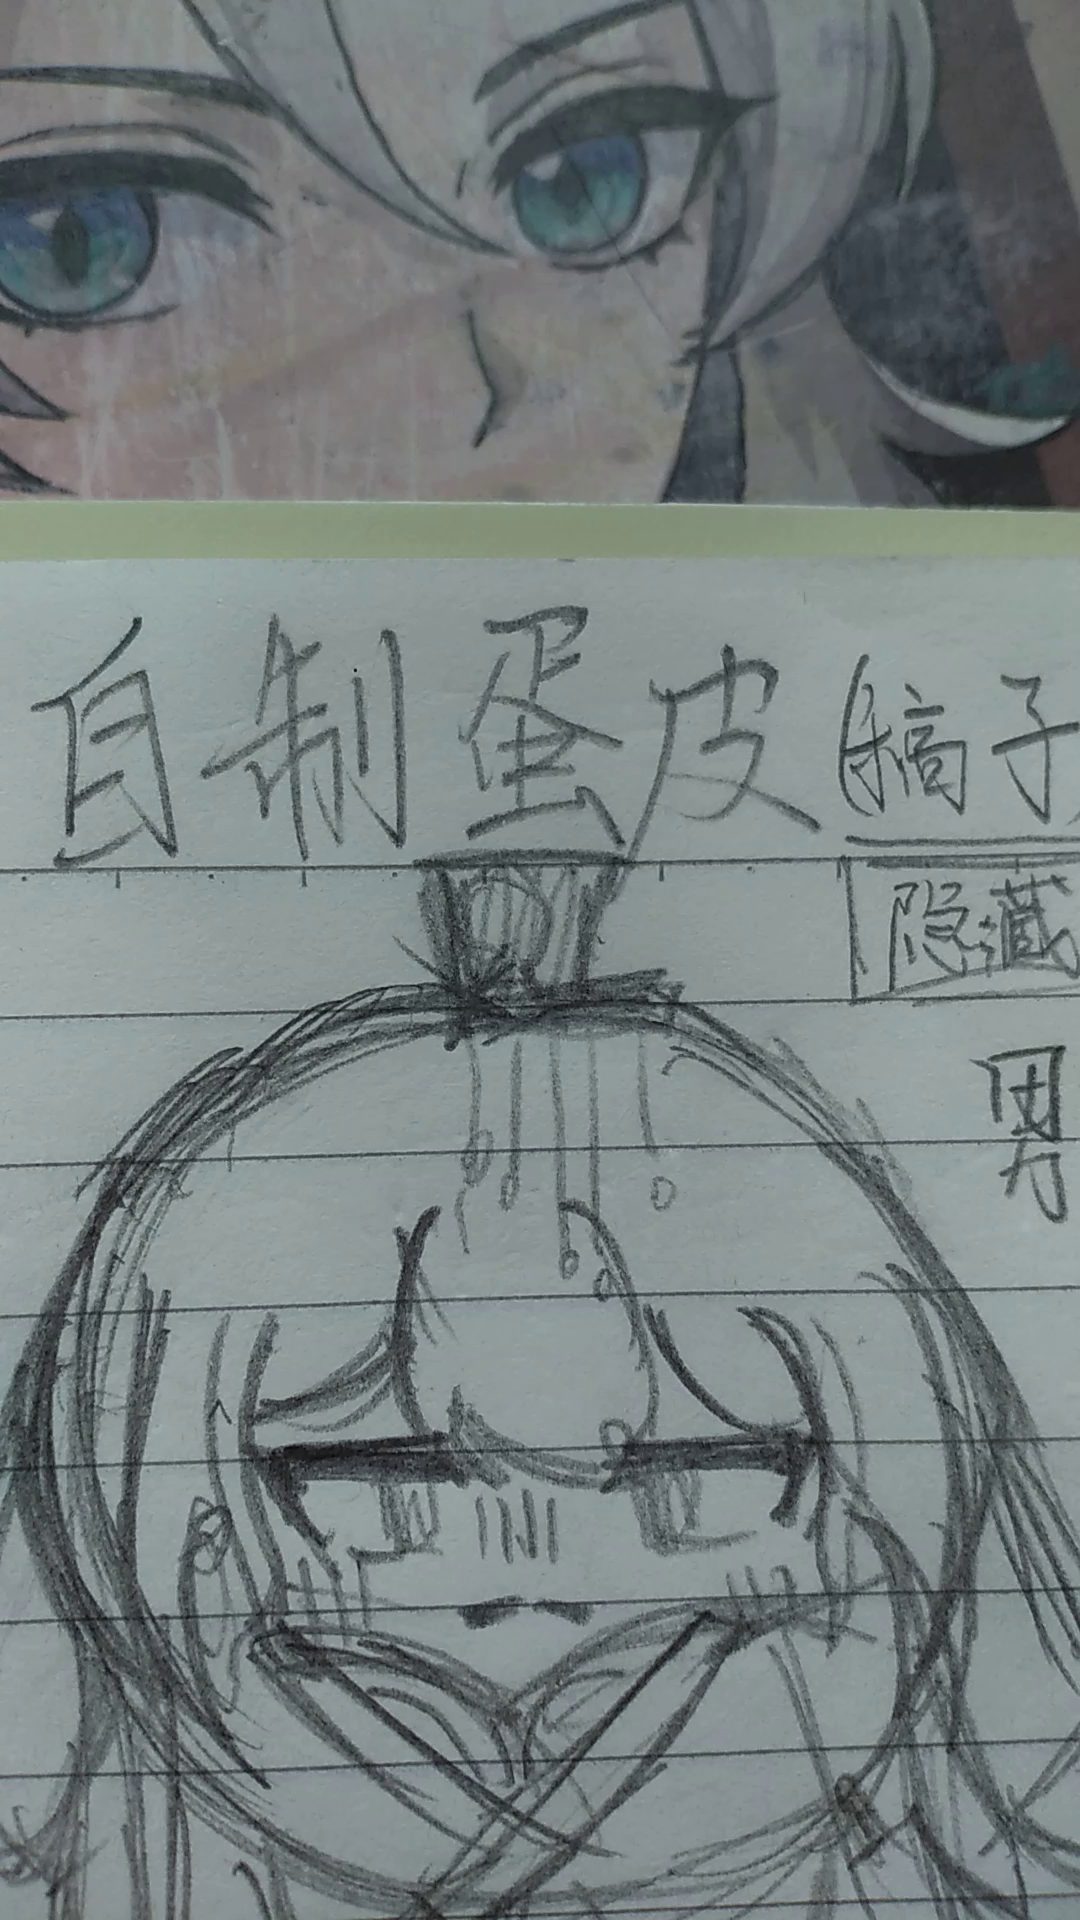 自制蛋皮(稿子)
隐藏
男